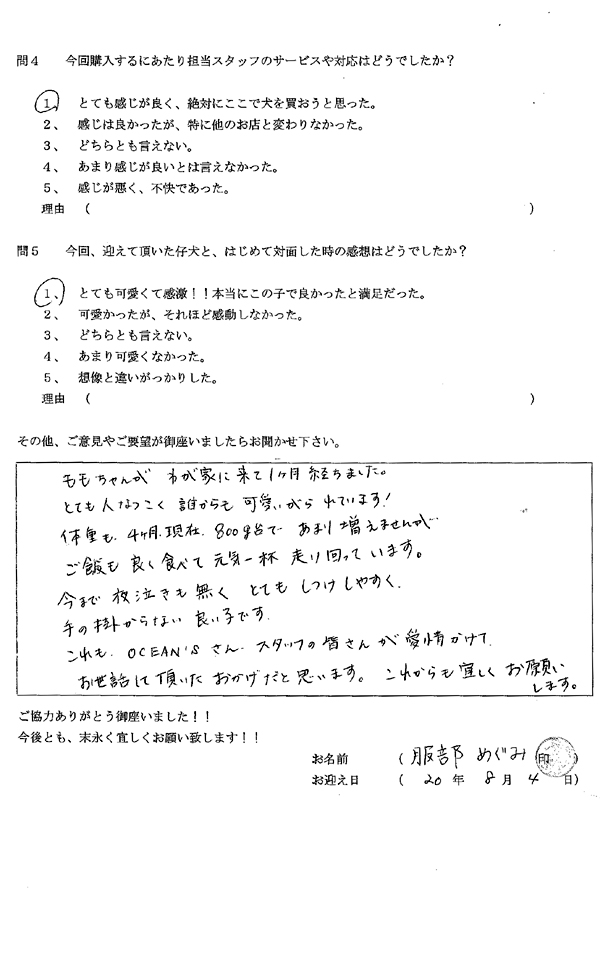 問4　今回購入するにあたり担当スタッフのサービスや対応はどうでしたか？
1、　とても感じが良く、絶対にここで犬を買おうと思った。
2、　感じは良かったが、特に他のお店と変わりなかった。
3、　どちらとも言えない。
4、　あまり感じが良いとは言えなかった。
5、　感じが悪く、不快であった。
理由　（　　　）
問5　今回、迎えて頂いた仔犬と、はじめて対面した時の感想はどうでしたか？
1、　とても可愛くて感激！！本当にこの子で良かったと満足だった。
2、　可愛かったが、それほど感動しなかった。
3、　どちらとも言えない。
4、　あまり可愛くなかった。
5、　想像と違いがっかりした。
理由　（　　　）
その他、ご意見やご要望が御座いましたらお聞かせ下さい。
ももちゃんが わが家に来て1ヶ月 経ちました。
とても人なつこく 誰からも可愛いがられています!
体重も、4ヶ月、現在、800g台で あまり増えませんが
ご飯も良く食べて元気一杯 走り回っています。
今まで夜泣きも無く とても しつけしやすく、
手の掛からない良い子です。
これも、OCEAN'Sさん、スタッフの皆さんが愛情かけて、
お世話して頂いた おかげだと思います。これからも宜しくお願い
します。
ご協力ありがとう御座いました！！
今後とも、末永く宜しくお願い致します！！
お名前　（ 服部 めぐみ 印 ）
お迎え日　（ 20年 8月 4日）